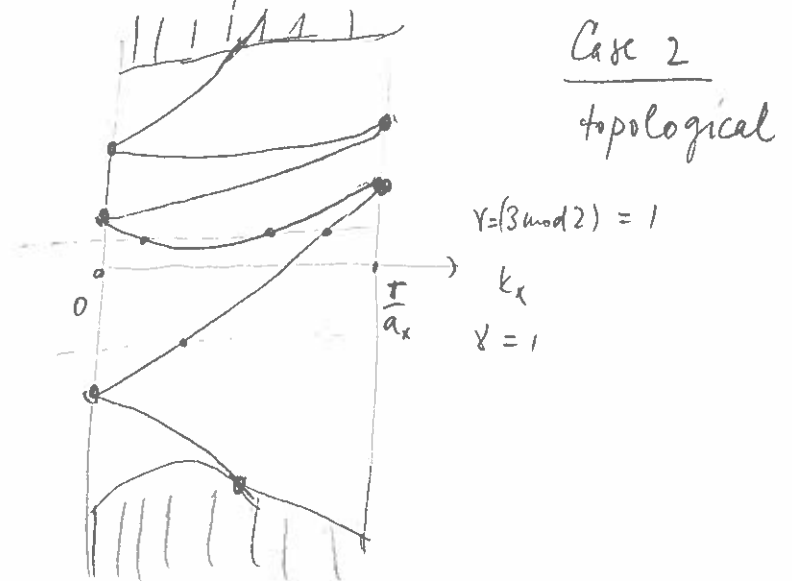 Case 2
topological
γ=(3mod2) = 1
0
π/aₓ
kₓ
γ = 1